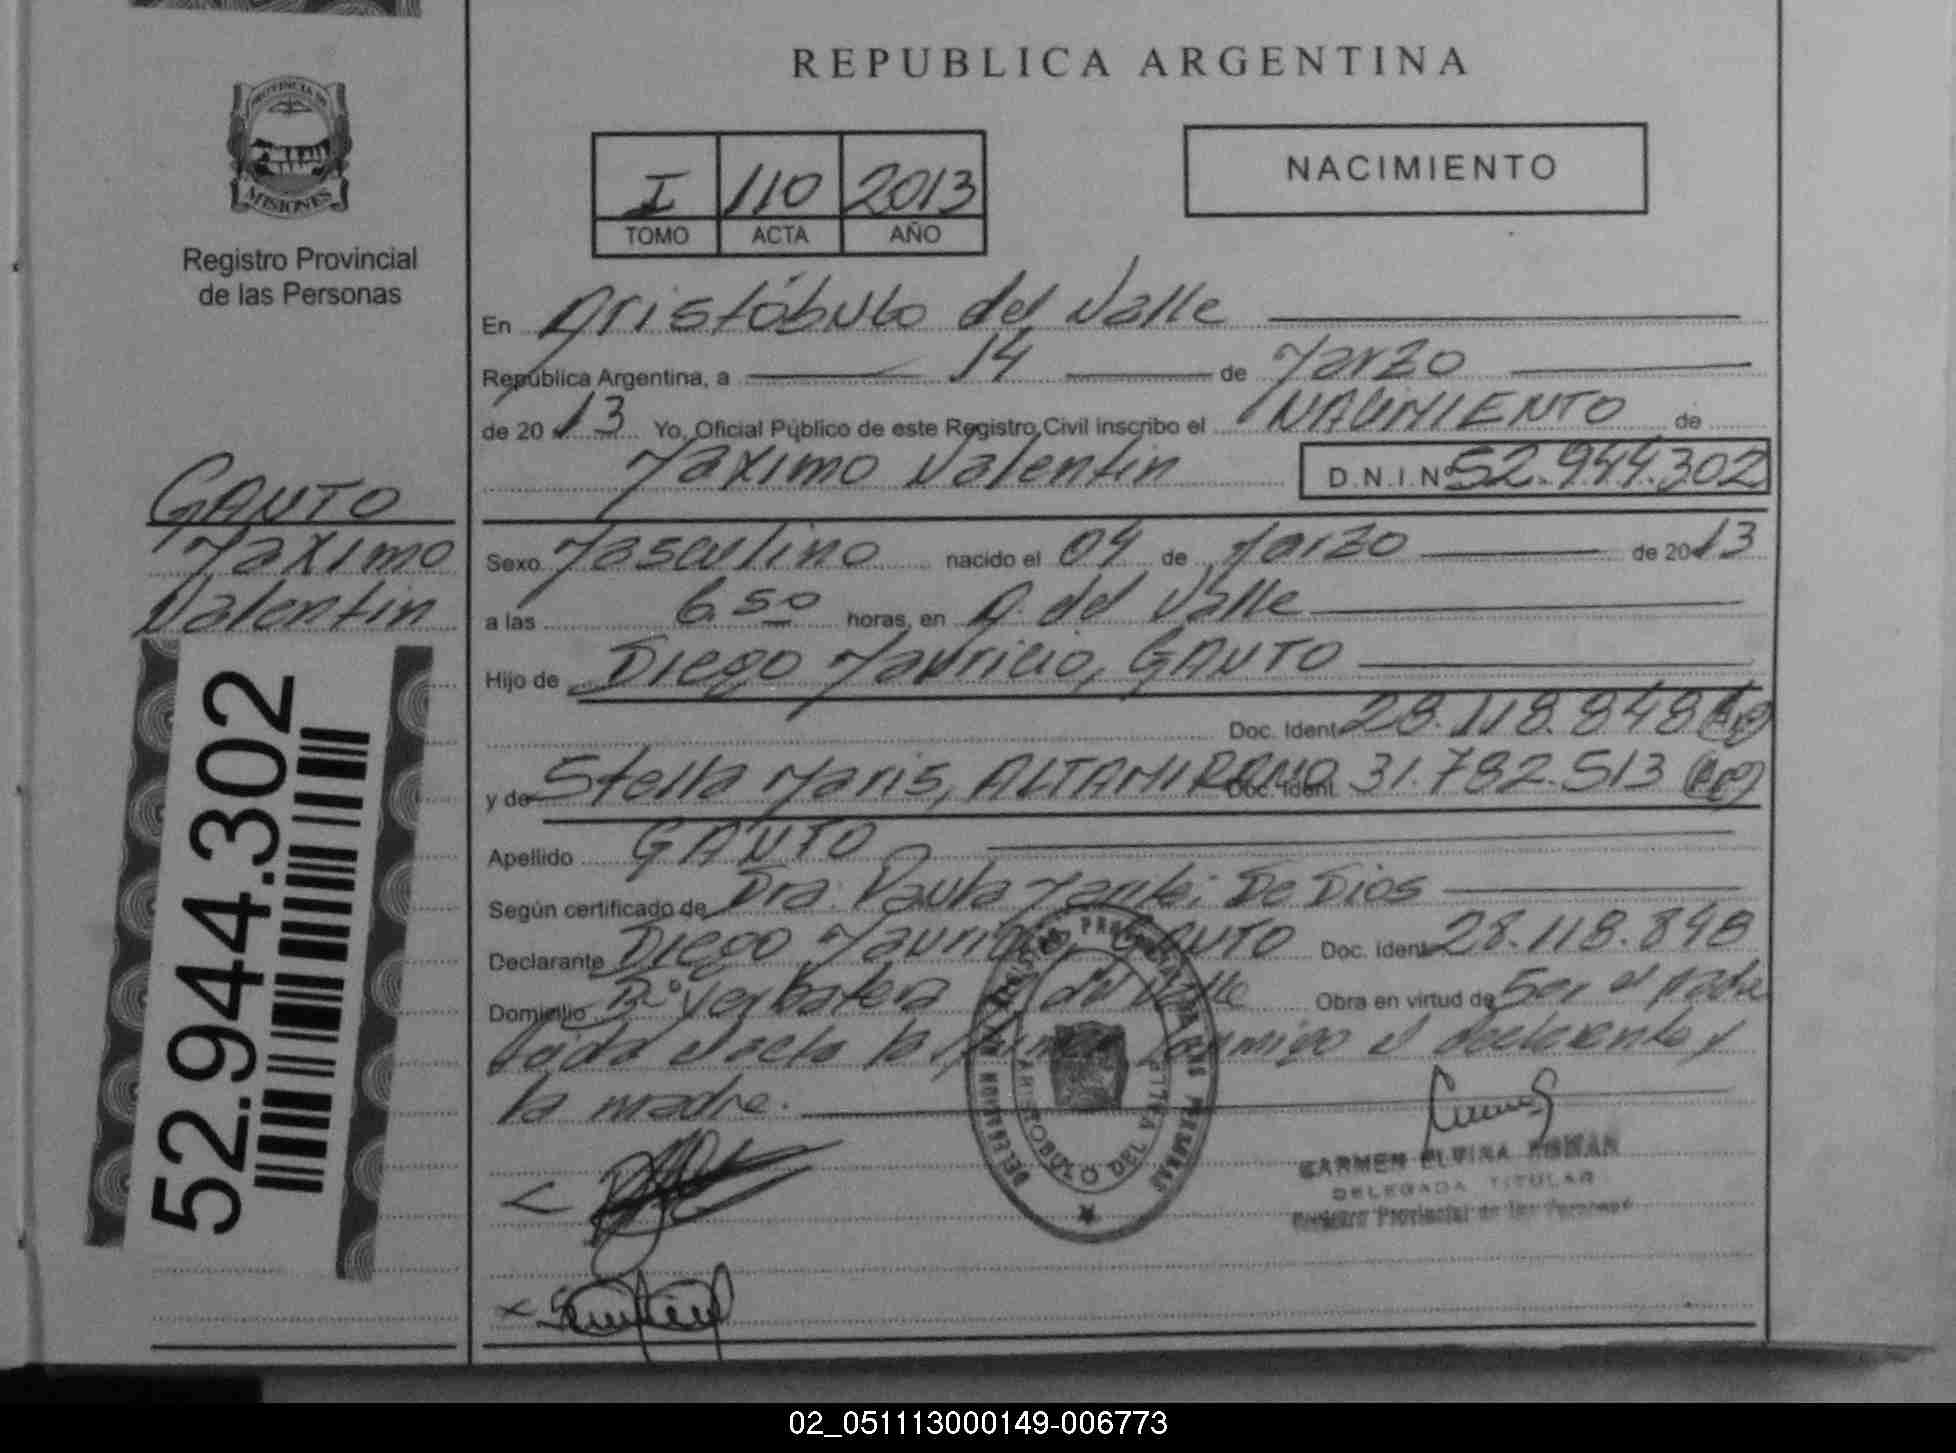 REPUBLICA ARGENTINA
PROVINCIA DE
MISIONES
Registro Provincial
de las Personas
I 110 2013
TOMO ACTA AÑO
NACIMIENTO
En Aristóbulo del Valle
República Argentina, a 14 de Marzo
de 20 13 Yo, Oficial Público de este Registro Civil inscribo el NACIMIENTO de
Máximo Valentin D.N.I.Nº 52.944.302
GAUTO
Máximo
Valentin
Sexo Masculino nacido el 04 de Marzo de 20 13
a las 6.50 horas, en A. del Valle
Hijo de Diego Mauricio, GAUTO
Doc. Ident 28.118.848
y de Stella Maris, ALTAMIRANO Doc. Ident. 31.782.513
Apellido GAUTO
Según certificado de Dra. Paula De Dios
Declarante Diego Mauricio, GAUTO Doc. Ident 28.118.848
Domicilio Bº Yerbatera del Valle Obra en virtud de Ser el padre
Leída el acta la firman conmigo el declarante y
la madre.
52.944.302
REGISTRO PROVINCIAL DE LAS PERSONAS
DELEGACION
ARISTOBULO DEL VALLE
CARMEN ELVIRA
DELEGADA TITULAR
Registro Provincial de las Personas
02_051113000149-006773